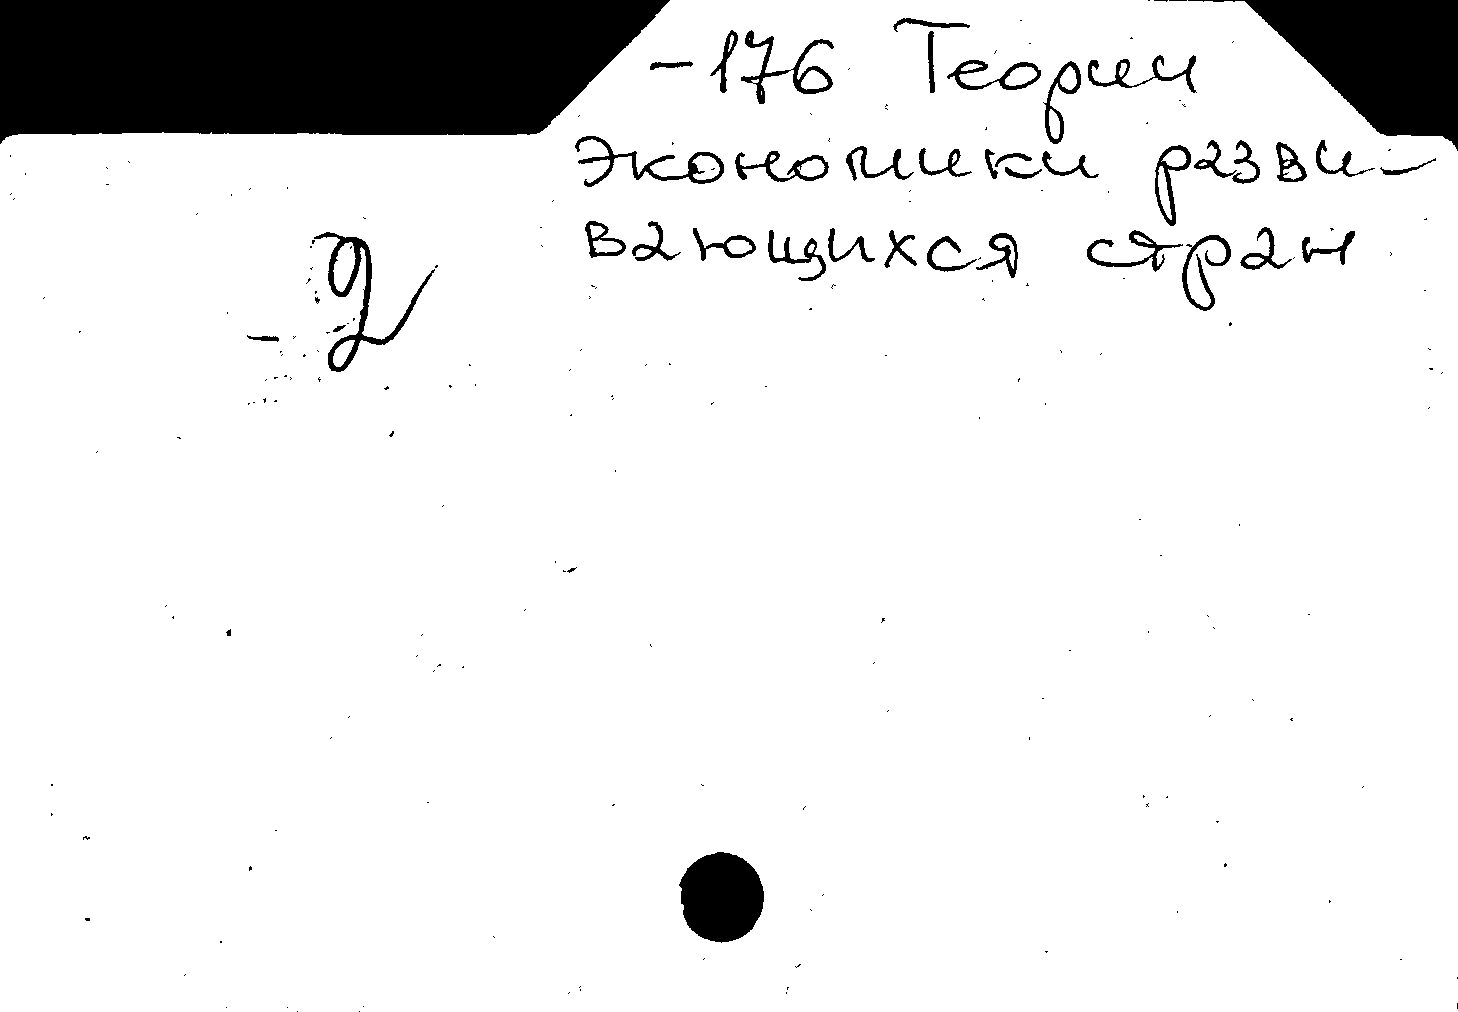 -176 Теории
экономики разви-
вающихся стран
- 2